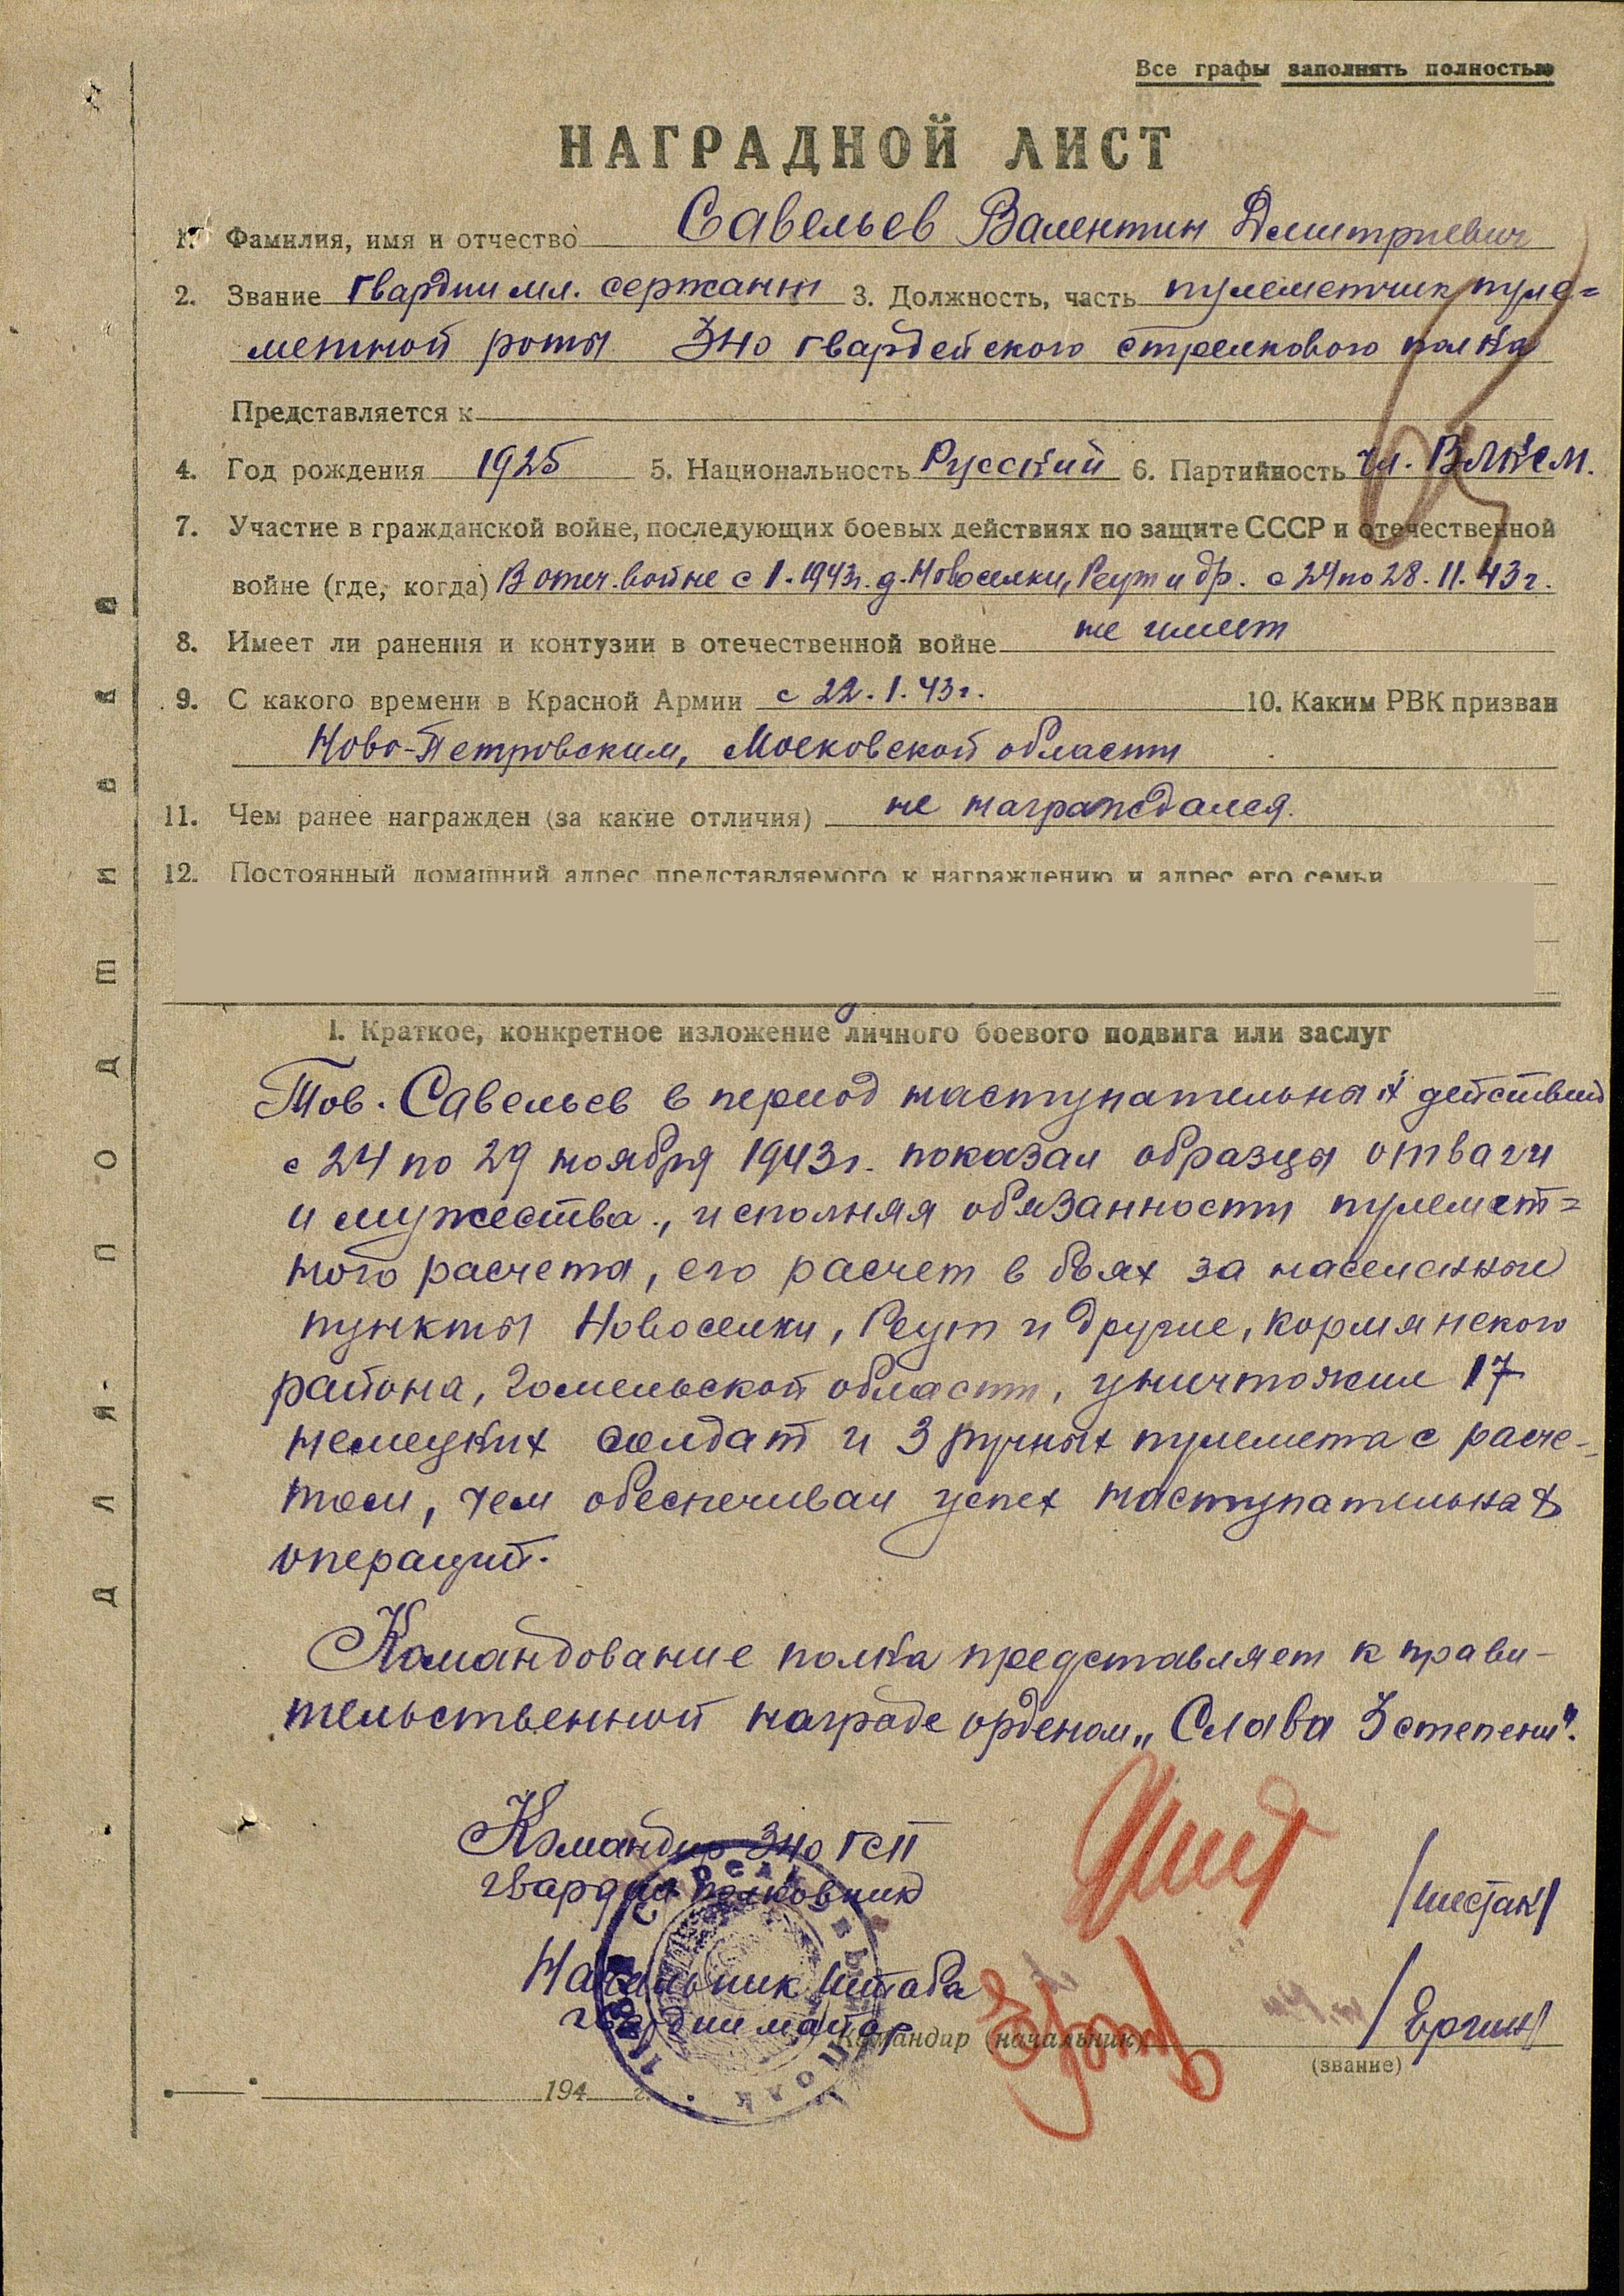 Все графы заполнять полностью
НАГРАДНОЙ ЛИСТ
1. Фамилия, имя и отчество Савельев Валентин Дмитриевич
2. Звание гвардии мл. сержант 3. Должность, часть пулеметчик пуле=
метной роты 340 гвардейского стрелкового полка
Представляется к
4. Год рождения 1925 5. Национальность Русский 6. Партийность чл. ВЛКСМ.
7. Участие в гражданской войне, последующих боевых действиях по защите СССР и отечественной
войне (где, когда) В отеч. войне с 1.1943г. д. Новоселки, Реут и др. с 24 по 28.11.43г.
8. Имеет ли ранения и контузии в отечественной войне не имеет
9. С какого времени в Красной Армии с 22.1.43г. 10. Каким РВК призван
Ново-Петровским, Московской области
11. Чем ранее награжден (за какие отличия) не награждался.
12. Постоянный домашний адрес представляемого к награждению и адрес его семьи
1. Краткое, конкретное изложение личного боевого подвига или заслуг
Тов. Савельев в период наступательных действий
с 24 по 29 ноября 1943г. показал образцы отваги
и мужества, исполняя обязанности пулемет=
ного расчета, его расчет в боях за населенные
пункты Новоселки, Реут и другие, Кормянского
района, Гомельской области, уничтожил 17
немецких солдат и 3 ручных пулемета с расче-
том, чем обеспечивал успех наступательных
операций.
Командование полка представляет к прави-
тельственной награде орденом „Слава 3 степени".
Командир 340 ГСП
гвардии полковник /Шестак/
Начальник штаба
гвардии майор /Ергин/
Командир (начальник)
(звание)
194 г.
Для подшивки